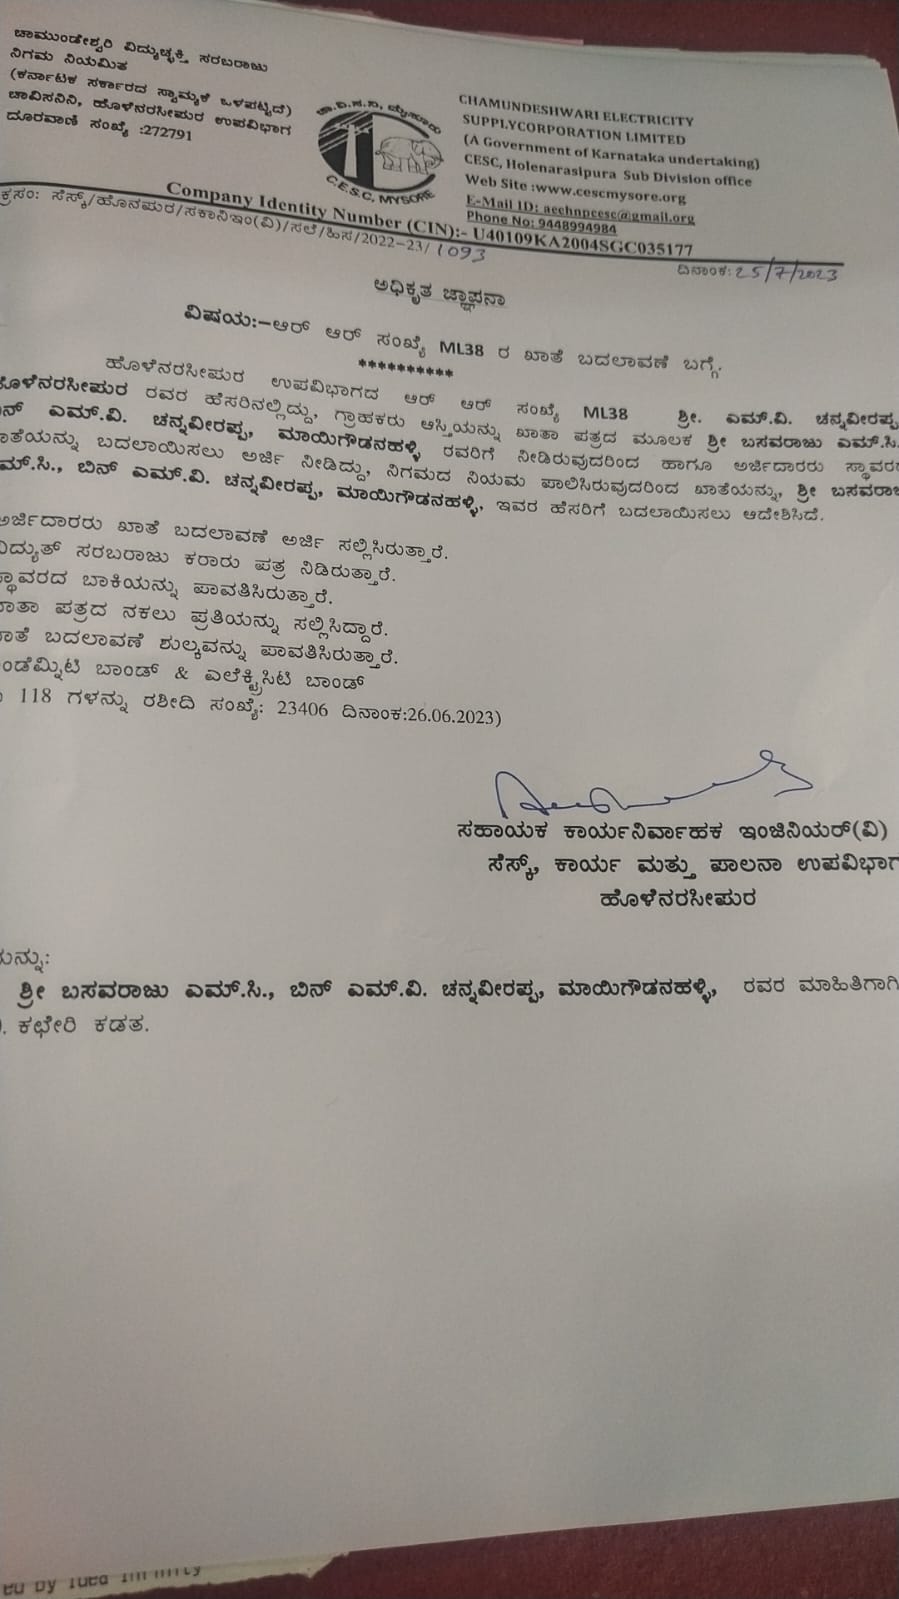 ಚಾಮುಂಡೇಶ್ವರಿ ವಿದ್ಯುಚ್ಛಕ್ತಿ ಸರಬರಾಜು
ನಿಗಮ ನಿಯಮಿತ
(ಕರ್ನಾಟಕ ಸರ್ಕಾರದ ಸ್ವಾಮ್ಯಕೆ ಒಳಪಟ್ಟಿದೆ)
ಚಾವಿಸನಿನಿ, ಹೊಳೆನರಸೀಪುರ ಉಪವಿಭಾಗ
ದೂರವಾಣಿ ಸಂಖ್ಯೆ :272791
ಚಾ.ವಿ.ಸ.ನಿ, ಮೈಸೂರು
C.E.S.C, MYSORE
CHAMUNDESHWARI ELECTRICITY
SUPPLYCORPORATION LIMITED
(A Government of Karnataka undertaking)
CESC, Holenarasipura Sub Division office
Web Site :www.cescmysore.org
E-Mail ID: aeehnpcesc@gmail.org
Phone No: 9448994984
Company Identity Number (CIN):- U40109KA2004SGC035177
ಕ್ರಸಂ: ಸೆಸ್ಕ್/ಹೊನಪುರ/ಸಕಾನಿಇಂ(ವಿ)/ಸಲೆ/ಹಿಸ/2022-23/1093
ದಿನಾಂಕ:25/7/2023
ಅಧಿಕೃತ ಜ್ಞಾಪನಾ
ವಿಷಯ:-ಆರ್ ಆರ್ ಸಂಖ್ಯೆ ML38 ರ ಖಾತೆ ಬದಲಾವಣೆ ಬಗ್ಗೆ.
**********
ಹೊಳೆನರಸೀಪುರ ಉಪವಿಭಾಗದ ಆರ್ ಆರ್ ಸಂಖ್ಯೆ ML38 ಶ್ರೀ. ಎಮ್.ವಿ. ಚನ್ನವೀರಪ್ಪ
ಹೊಳೆನರಸೀಪುರ ರವರ ಹೆಸರಿನಲ್ಲಿದ್ದು, ಗ್ರಾಹಕರು ಆಸ್ತಿಯನ್ನು ಖಾತಾ ಪತ್ರದ ಮೂಲಕ ಶ್ರೀ ಬಸವರಾಜು ಎಮ್.ಸಿ.
ಬಿನ್ ಎಮ್.ವಿ. ಚನ್ನವೀರಪ್ಪ, ಮಾಯಿಗೌಡನಹಳ್ಳಿ ರವರಿಗೆ ನೀಡಿರುವುದರಿಂದ ಹಾಗೂ ಅರ್ಜಿದಾರರು ಸ್ಥಾವರದ
ಖಾತೆಯನ್ನು ಬದಲಾಯಿಸಲು ಅರ್ಜಿ ನೀಡಿದ್ದು, ನಿಗಮದ ನಿಯಮ ಪಾಲಿಸಿರುವುದರಿಂದ ಖಾತೆಯನ್ನು, ಶ್ರೀ ಬಸವರಾಜು
ಎಮ್.ಸಿ., ಬಿನ್ ಎಮ್.ವಿ. ಚನ್ನವೀರಪ್ಪ, ಮಾಯಿಗೌಡನಹಳ್ಳಿ, ಇವರ ಹೆಸರಿಗೆ ಬದಲಾಯಿಸಲು ಆದೇಶಿಸಿದೆ.
ಅರ್ಜಿದಾರರು ಖಾತೆ ಬದಲಾವಣೆ ಅರ್ಜಿ ಸಲ್ಲಿಸಿರುತ್ತಾರೆ.
ವಿದ್ಯುತ್ ಸರಬರಾಜು ಕರಾರು ಪತ್ರ ನಿಡಿರುತ್ತಾರೆ.
ಸ್ಥಾವರದ ಬಾಕಿಯನ್ನು ಪಾವತಿಸಿರುತ್ತಾರೆ.
ಖಾತಾ ಪತ್ರದ ನಕಲು ಪ್ರತಿಯನ್ನು ಸಲ್ಲಿಸಿದ್ದಾರೆ.
ಖಾತೆ ಬದಲಾವಣೆ ಶುಲ್ಕವನ್ನು ಪಾವತಿಸಿರುತ್ತಾರೆ.
ಇಂಡೆಮ್ನಿಟಿ ಬಾಂಡ್ & ಎಲೆಕ್ಟ್ರಿಸಿಟಿ ಬಾಂಡ್
118 ಗಳನ್ನು ರಶೀದಿ ಸಂಖ್ಯೆ: 23406 ದಿನಾಂಕ:26.06.2023)
ಸಹಾಯಕ ಕಾರ್ಯನಿರ್ವಾಹಕ ಇಂಜಿನಿಯರ್(ವಿ)
ಸೆಸ್ಕ್, ಕಾರ್ಯ ಮತ್ತು ಪಾಲನಾ ಉಪವಿಭಾಗ
ಹೊಳೆನರಸೀಪುರ
ಶ್ರೀ ಬಸವರಾಜು ಎಮ್.ಸಿ., ಬಿನ್ ಎಮ್.ವಿ. ಚನ್ನವೀರಪ್ಪ, ಮಾಯಿಗೌಡನಹಳ್ಳಿ, ರವರ ಮಾಹಿತಿಗಾಗಿ
ಕಛೇರಿ ಕಡತ.
ed by Idea Infinity